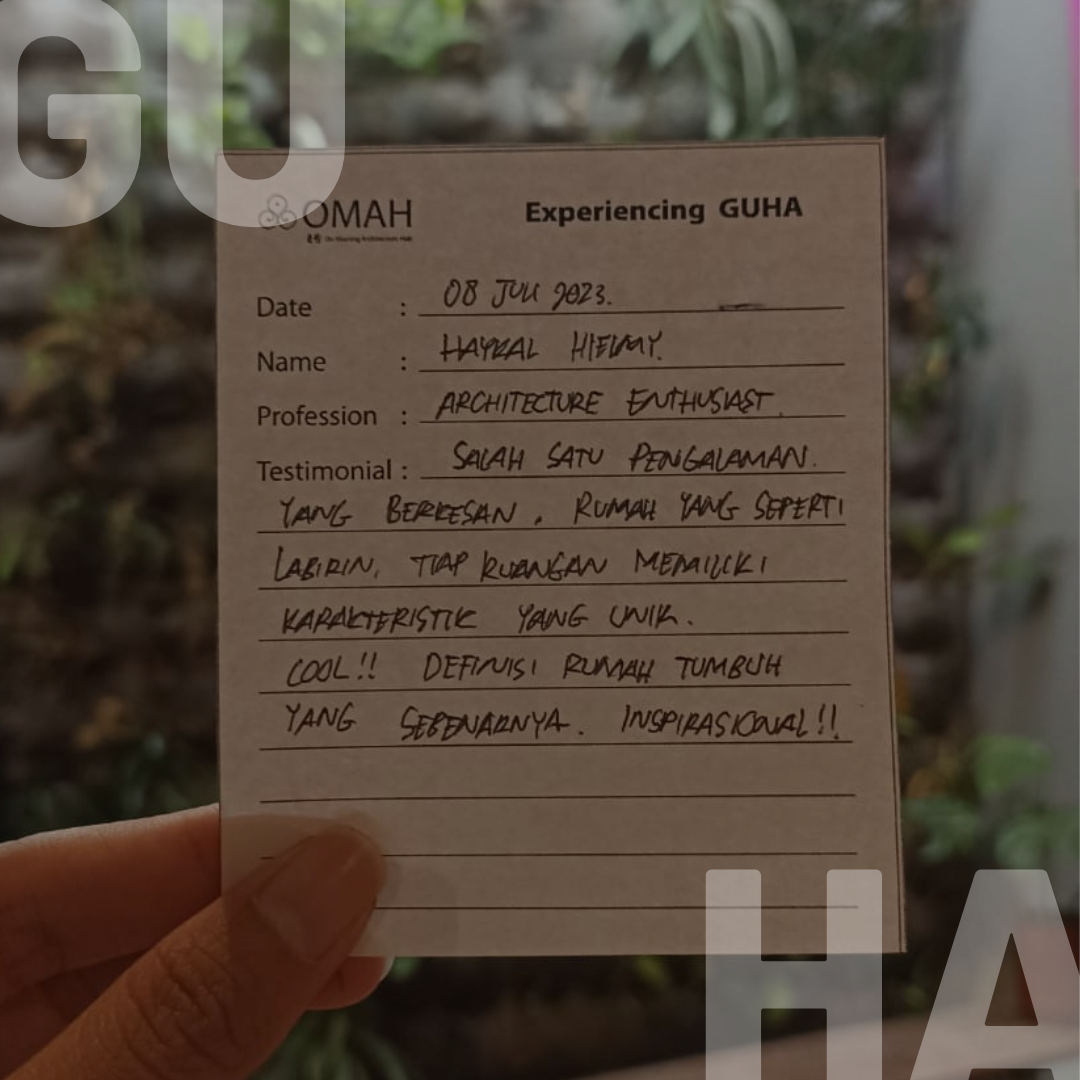 GU
OMAH
Experiencing GUHA
Date : 08 JULI 2023.
Name : HAYKAL HIELMY.
Profession : ARCHITECTURE ENTHUSIAST.
Testimonial : SALAH SATU PENGALAMAN.
YANG BERKESAN. RUMAH YANG SEPERTI
LABIRIN, TIAP RUANGAN MEMILIKI
KARAKTERISTIK YANG UNIK.
COOL!! DEFINISI RUMAH TUMBUH
YANG SEBENARNYA. INSPIRASIONAL!!
HA